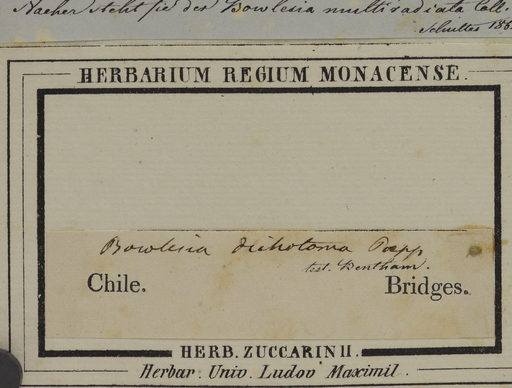 Naeher steht sie der Bowlesia multiradiata
Schultes
HERBARIUM REGIUM MONACENSE.
Bowlesia dichotoma Poepp
test. Bentham.
Chile. Bridges.
HERB. ZUCCARINII.
Herbar. Univ. Ludov Maximil.